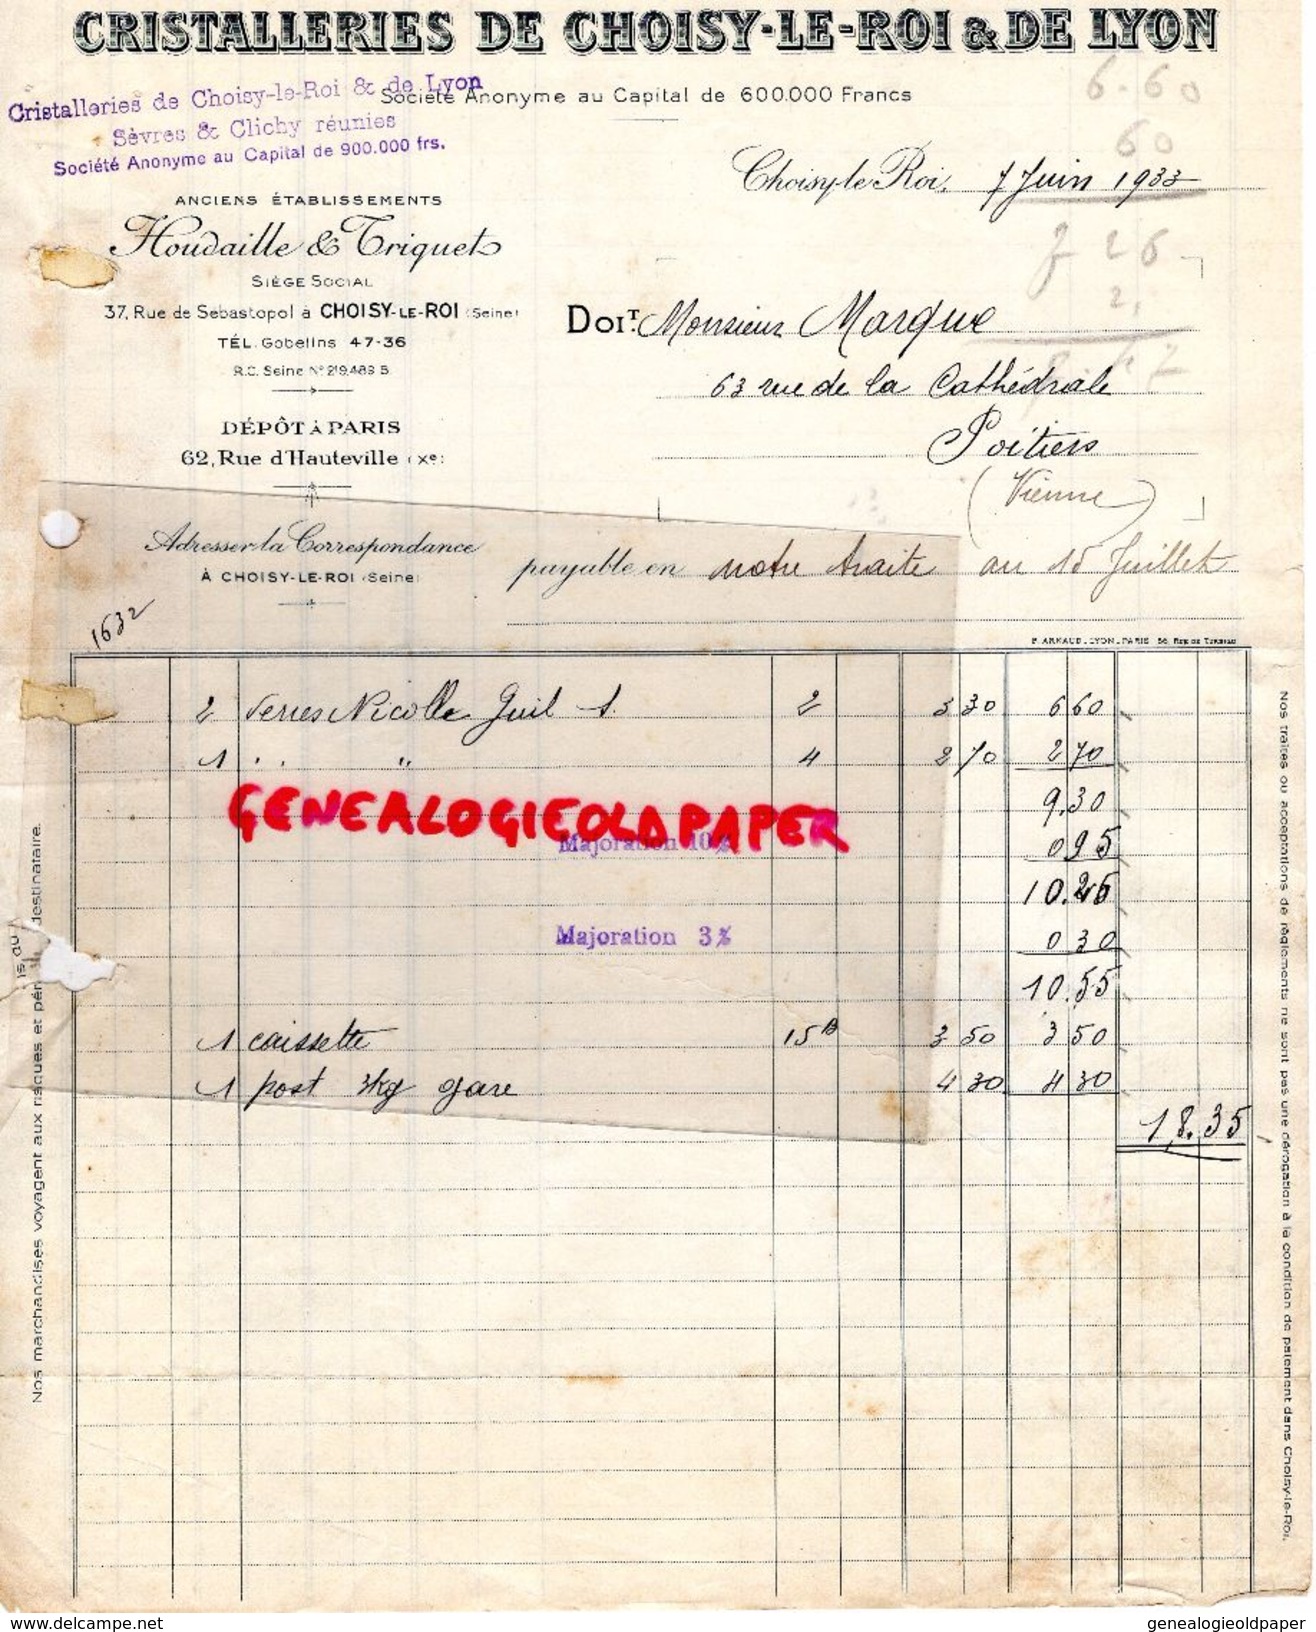 CRISTALLERIES DE CHOISY-LE-ROI & DE LYON
Cristalleries de Choisy-le-Roi & de Lyon
Sèvres & Clichy réunies
Société Anonyme au Capital de 900.000 frs.
Société Anonyme au Capital de 600.000 Francs
6.60
60
Choisy-le-Roi, 7 Juin 1933
ANCIENS ÉTABLISSEMENTS
Houdaille & Triquet
SIÈGE SOCIAL
37, Rue de Sébastopol à CHOISY-LE-ROI (Seine)
TÉL. Gobelins 47-36
R.C. Seine Nº 219.483 B
7 26
2.
DOIT. Monsieur Marque
63 rue de la Cathédrale
Poitiers
(Vienne)
DÉPÔT À PARIS
62, Rue d'Hauteville (Xe)
Adresser la Correspondance
À CHOISY-LE-ROI (Seine)
payable en notre traite au 15 Juillet
1632
P. ARNAUD_LYON_PARIS
2 Verres Nicolle Guil 1. 2 3 30 6 60
1 " " 4 2 70 2 70
9.30
GENEALOGIEOLDPAPER
Majoration 10% 0 95
10.25
Majoration 3% 0 30
10.55
1 caissette 15 B 3 50 3 50
1 post 3kg gare 4 30 4 30
18.35
Nos marchandises voyagent aux risques et destinataire.
Nos traites ou acceptations de règlements ne sont pas une dérogation à la condition de paiement dans Choisy-le-Roi.
www.delcampe.net
genealogieoldpaper